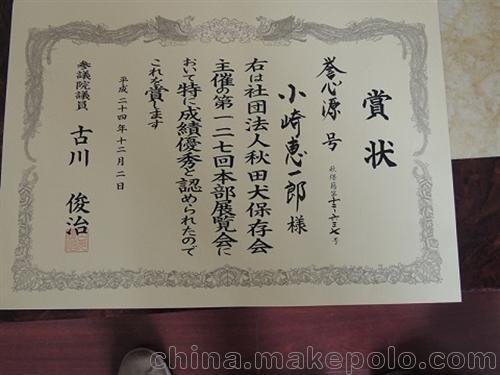 賞状
誉心源 号
小崎恵一郎 様
右は社団法人秋田犬保存会
主催の第一二七回本部展覧会に
おいて特に成績優秀と認められたので
これを賞します
平成二十四年十二月二日
参議院議員 古川 俊治
china.makepolo.com